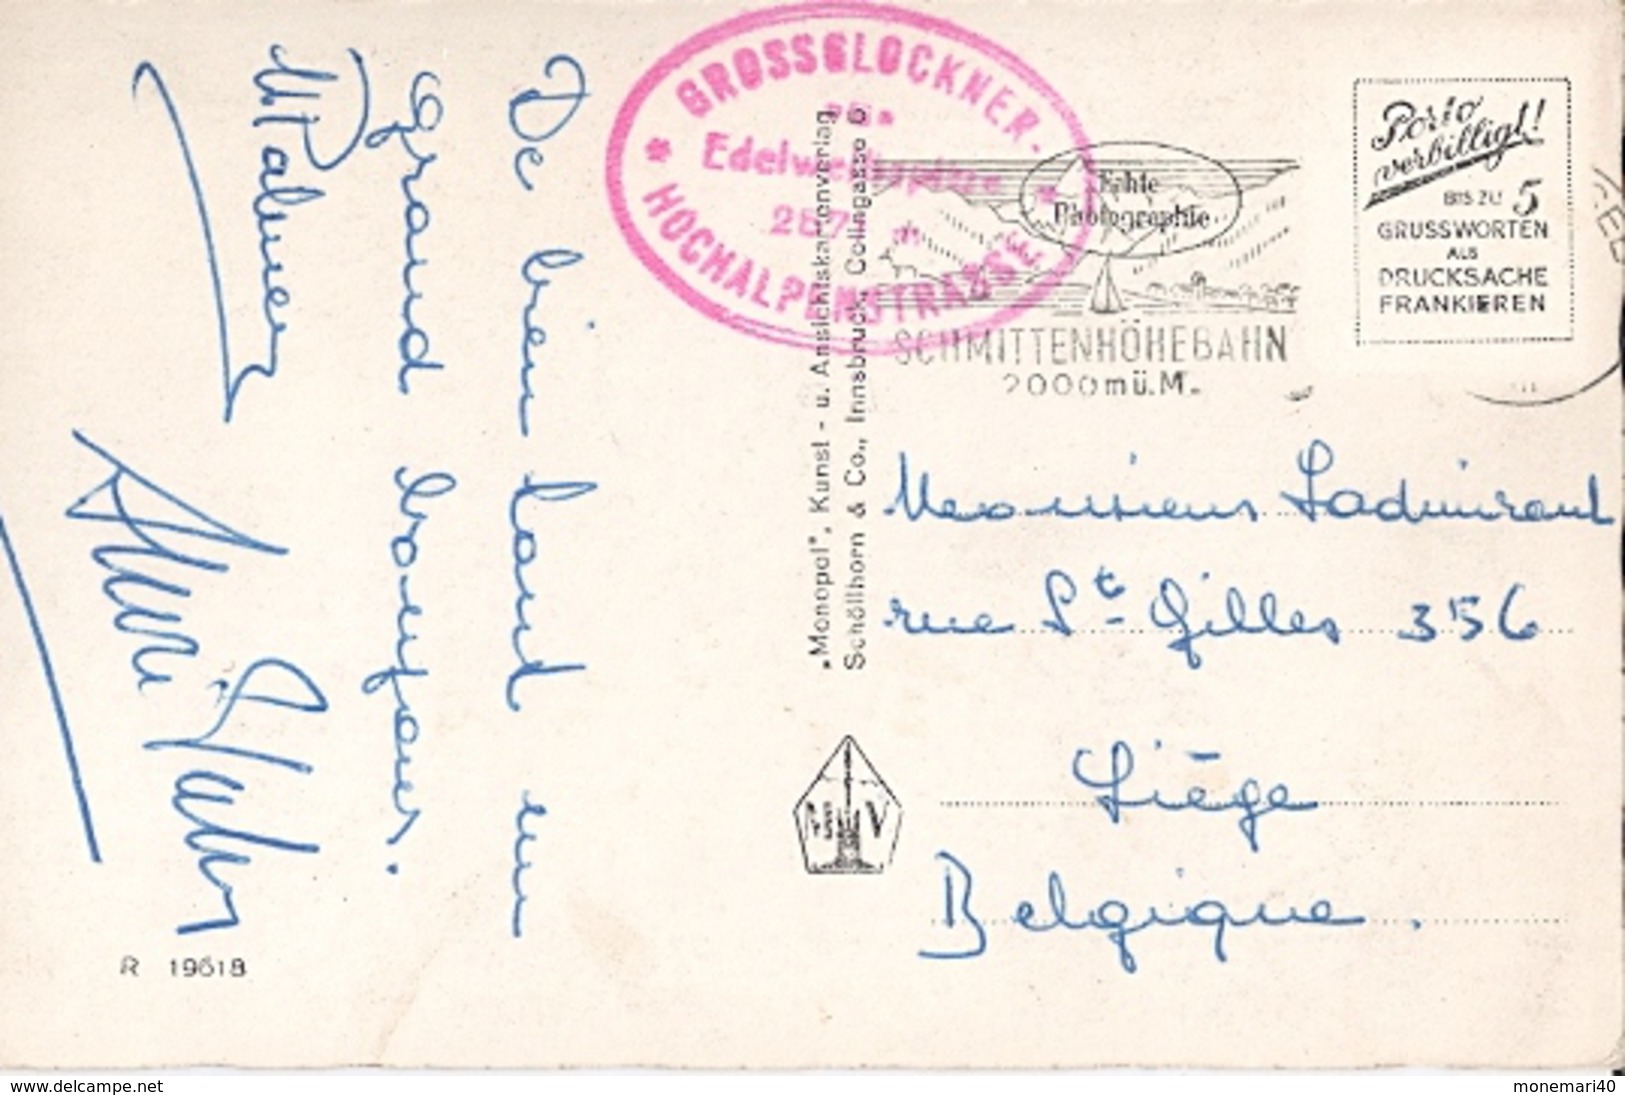 De bien loin un
grand bonjour.
GROSSGLOCKNER-
HOCHALPENSTRASSE
„Monopol", Kunst - u. Ansichtskartenverlag
Schöllhorn & Co., Innsbruck, Colingasse 6
Echte
Photographie
SCHMITTENHÖHEBAHN
2000 m ü. M.
Porto
verbilligt!
BIS ZU 5
GRUSSWORTEN
ALS
DRUCKSACHE
FRANKIEREN
Monsieur Ladmirant
rue St-Gilles 356
Liège
Belgique.
M V
R 19618
www.delcampe.net
monemari40